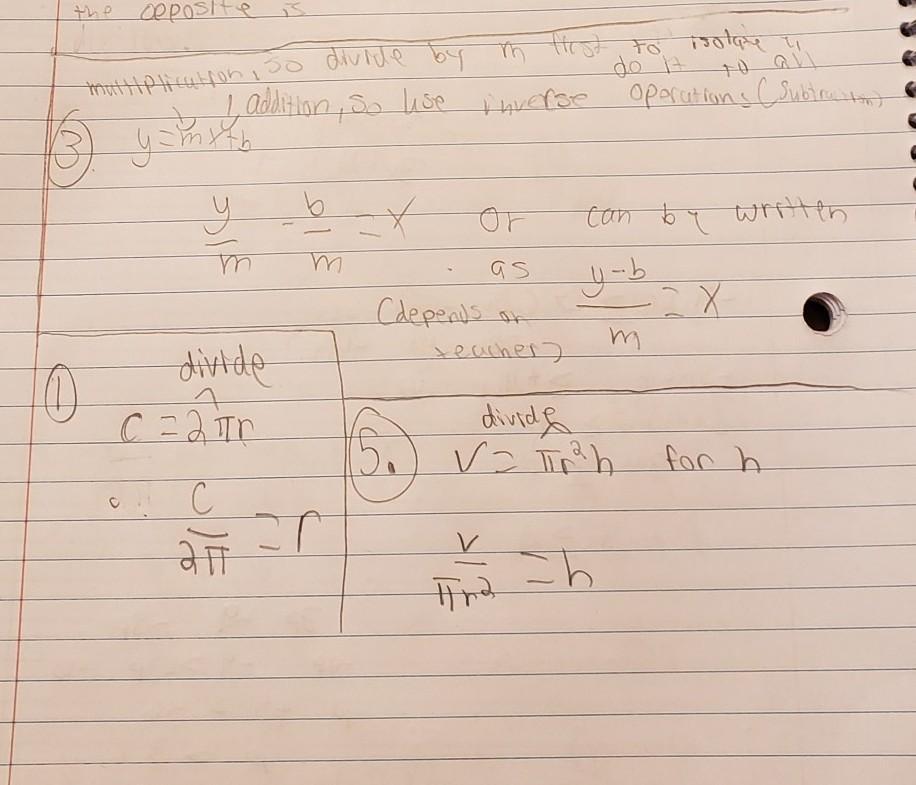 the opposite is
multiplication, so divide by m first to isolate
do it to all
addition, so use inverse operations (subtraction)
3. y=mx+b
y/m - b/m = x or can by written
as y-b/m = x
(depends on
teacher)
1 divide
C = 2πr
∴ C/2π = r
divide
5. V = πr²h for h
V/πr² = h